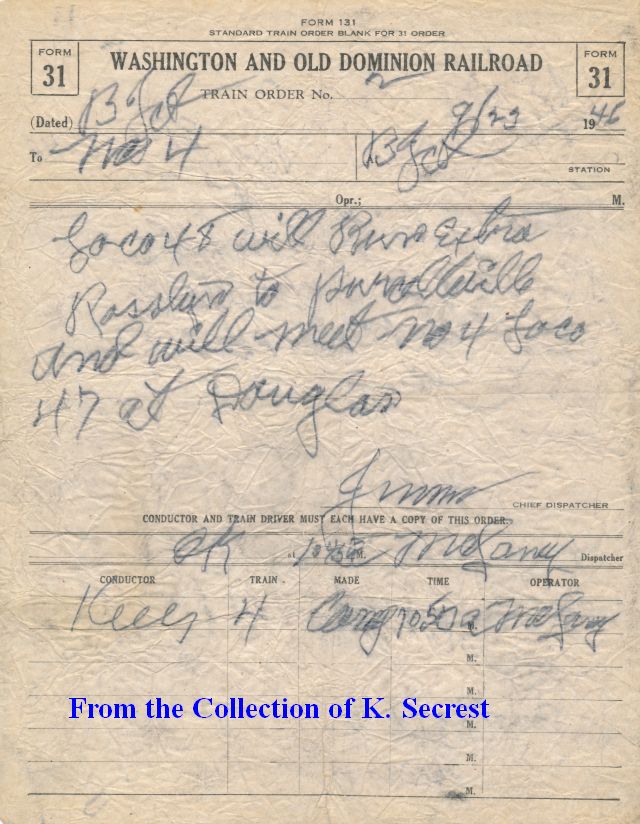 FORM 131
STANDARD TRAIN ORDER BLANK FOR 31 ORDER
FORM 31
WASHINGTON AND OLD DOMINION RAILROAD
FORM 31
TRAIN ORDER No. 2
(Dated) B Jct 9/23 1946
To No 4 At B Jct STATION
Opr.; M.
Loco 48 will Run Extra
Rosslyn to Purcellville
and will meet No 4 Loco
47 at Douglas
CHIEF DISPATCHER
CONDUCTOR AND TRAIN DRIVER MUST EACH HAVE A COPY OF THIS ORDER.
OK at M. Dispatcher
CONDUCTOR TRAIN MADE TIME OPERATOR
4 Com 10 50 a M.
M.
M.
M.
M.
M.
From the Collection of K. Secrest